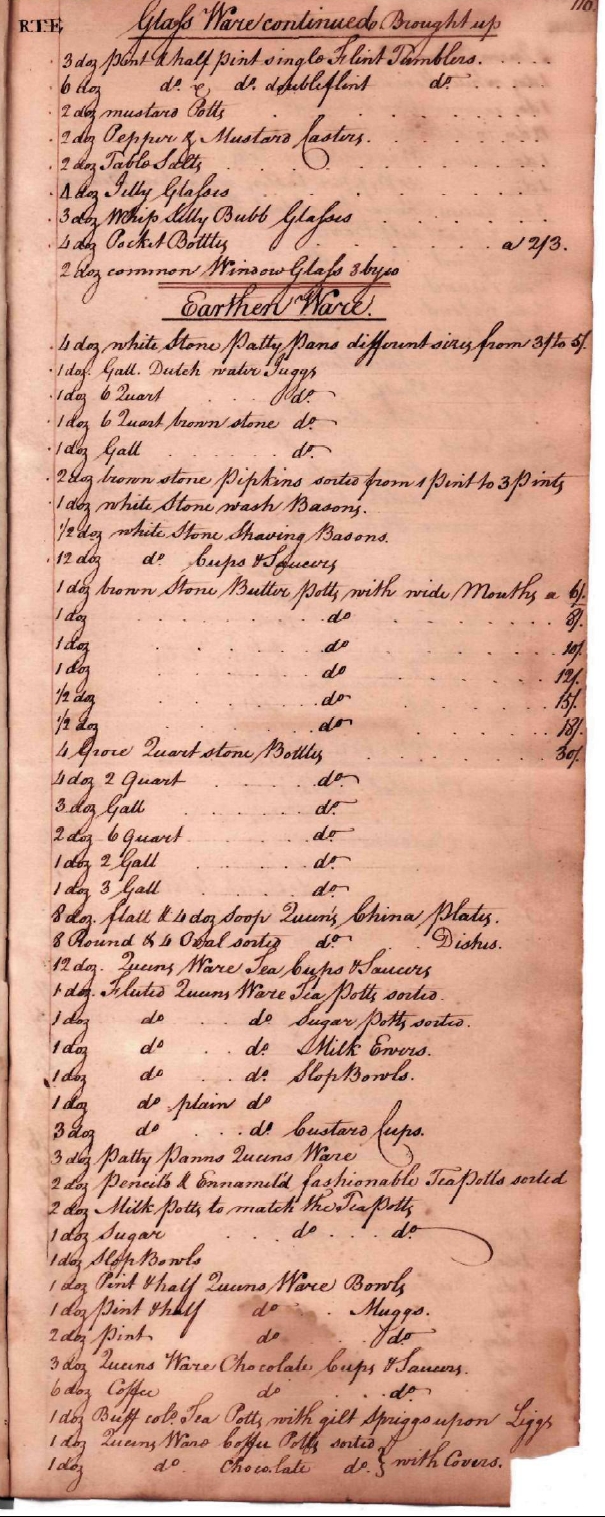 116
RTE
Glass Ware continued Brought up
3 doz pint & half pint single Flint Tumblers.
6 doz do. & do. doubleflint do.
2 doz mustard Potts
2 doz Pepper & Mustard Casters.
2 doz Table Salts
4 doz Jelly Glasses
3 doz Whip Silly Bubb Glasses
4 doz Pocket Bottles a 2/3.
2 doz common Window Glass 8 by 10
Earthen Ware.
4 doz white Stone Patty Pans different sizes from 3/ to 5/
1 doz. Gall. Dutch water Juggs
1 doz 6 Quart do.
1 doz 6 Quart brown stone do.
1 doz Gall do.
2 doz brown stone Pipkins sorted from 1 Pint to 3 Pints
1 doz white Stone wash Basons.
1/2 doz white Stone Shaving Basons.
12 doz do. Cups & Saucers
1 doz brown Stone Butter Potts with wide Mouths a 6/.
1 doz do 8/.
1 doz do 10/.
1 doz do 12/.
1/2 doz do 15/.
1/2 doz do 18/.
4 Groce Quart stone Bottles 30/.
4 doz 2 Quart do.
3 doz Gall do.
2 doz 6 Quart do.
1 doz 2 Gall do.
1 doz 3 Gall do.
8 doz. flatt & 4 doz Soop Queen's China Plates.
8 Round & 4 Oval sorted do. Dishes.
12 doz. Queens Ware Tea Cups & Saucers
1 doz. Fluted Queens Ware Tea Potts sorted.
1 doz do do. Sugar Potts sorted.
1 doz do do. Milk Ewers.
1 doz do do. Slop Bowls.
1 doz do plain do
3 doz do do. Custard Cups.
3 doz Patty Panns Queens Ware
2 doz Pencil'd & Ennamel'd fashionable Tea Potts sorted
2 doz Milk Potts to match the Tea Potts
1 doz Sugar do do.
1 doz Slop Bowls
1 doz Pint & half Queens Ware Bowls
1 doz Pint & half do Muggs.
2 doz Pint do do
3 doz Queens Ware Chocolate Cups & Saucers.
6 doz Coffee do do.
1 doz Buff colo. Tea Potts with gilt Spriggs upon Liggs
1 doz Queens Ware Coffee Potts sorted
1 doz do Chocolate do. } with Covers.